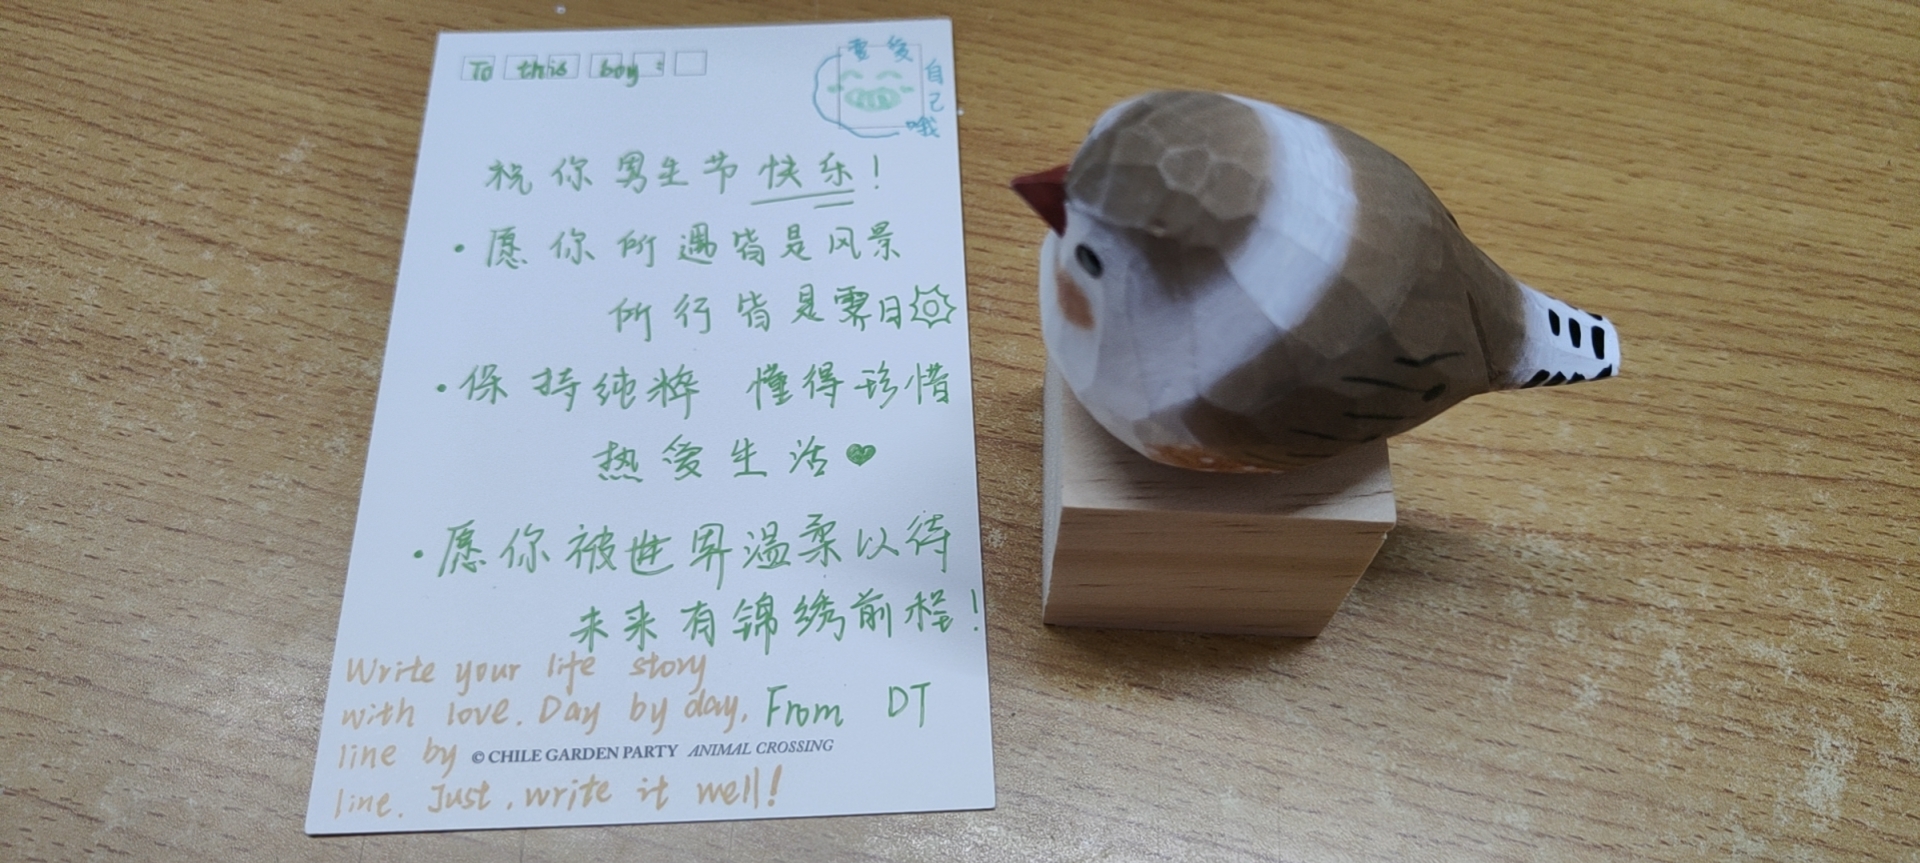 To this boy:
要爱自己哦
祝你男生节快乐!
·愿你所遇皆是风景
所行皆是霁日
·保持纯粹 懂得珍惜
热爱生活
·愿你被世界温柔以待
未来有锦绣前程!
Write your life story
with love. Day by day,
From DT
line by
© CHILE GARDEN PARTY ANIMAL CROSSING
line. Just. write it well!